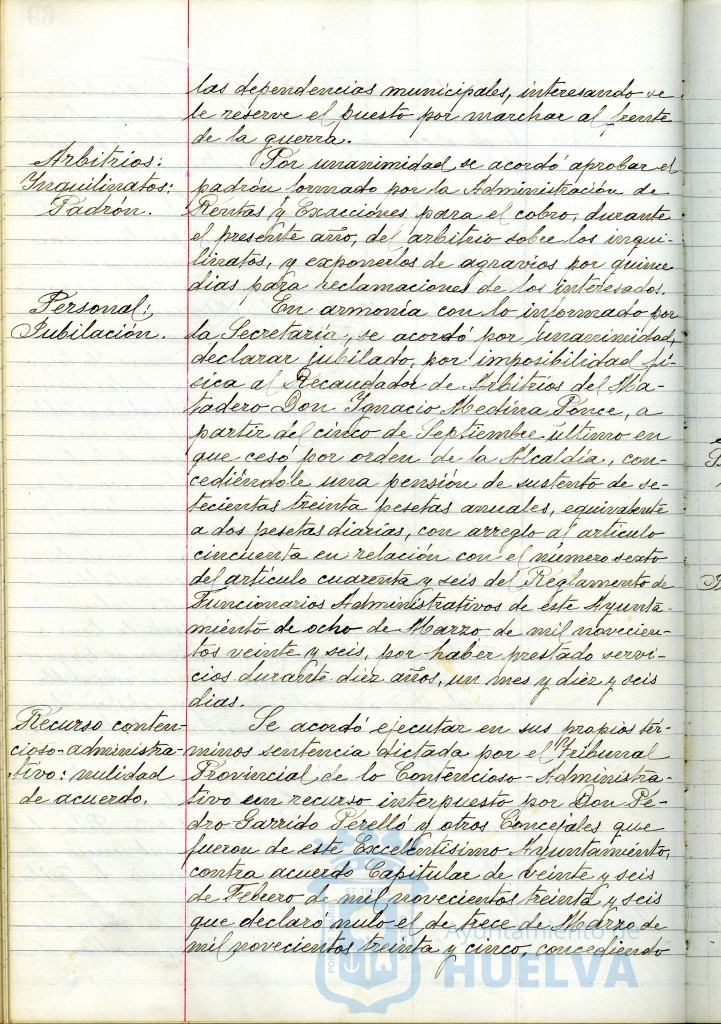 las dependencias municipales, interesando se
le reserve el puesto por marchar al frente
de la guerra.
Arbitrios:
Inquilinatos:
Padrón.
Por unanimidad se acordó aprobar el
padrón formado por la Administración de
Rentas y Exacciones para el cobro, durante
el presente año, del arbitrio sobre los inqui-
linatos, y exponerlos de agravios por quince
dias para reclamaciones de los interesados.
Personal:
Jubilación.
En armonía con lo informado por
la Secretaría, se acordó por unanimidad,
declarar jubilado, por imposibilidad fí-
sica al Recaudador de Arbitrios del Ma-
tadero Don Ignacio Medina Ponce, a
partir del cinco de Septiembre último en
que cesó por orden de la Alcaldía, con-
cediéndole una pensión de sustento de se-
tecientas treinta pesetas anuales, equivalente
a dos pesetas diarias, con arreglo al artículo
cincuenta en relación con el número sexto
del artículo cuarenta y seis del Reglamento de
Funcionarios Administrativos de este Ayunta-
miento de ocho de Marzo de mil novecien-
tos veinte y seis, por haber prestado servi-
cios durante diez años, un mes y diez y seis
dias.
Recurso conten-
cioso-administra-
tivo: nulidad
de acuerdo.
Se acordó ejecutar en sus propios tér-
minos sentencia dictada por el Tribunal
Provincial de lo Contencioso-Administra-
tivo en recurso interpuesto por Don Pe-
dro Garrido Perelló y otros Concejales que
fueron de este Excelentísimo Ayuntamiento,
contra acuerdo Capitular de veinte y seis
de Febrero de mil novecientos treinta y seis
que declaró nulo el de trece de Marzo de
mil novecientos treinta y cinco, concediendo
Ayuntamiento de
HUELVA